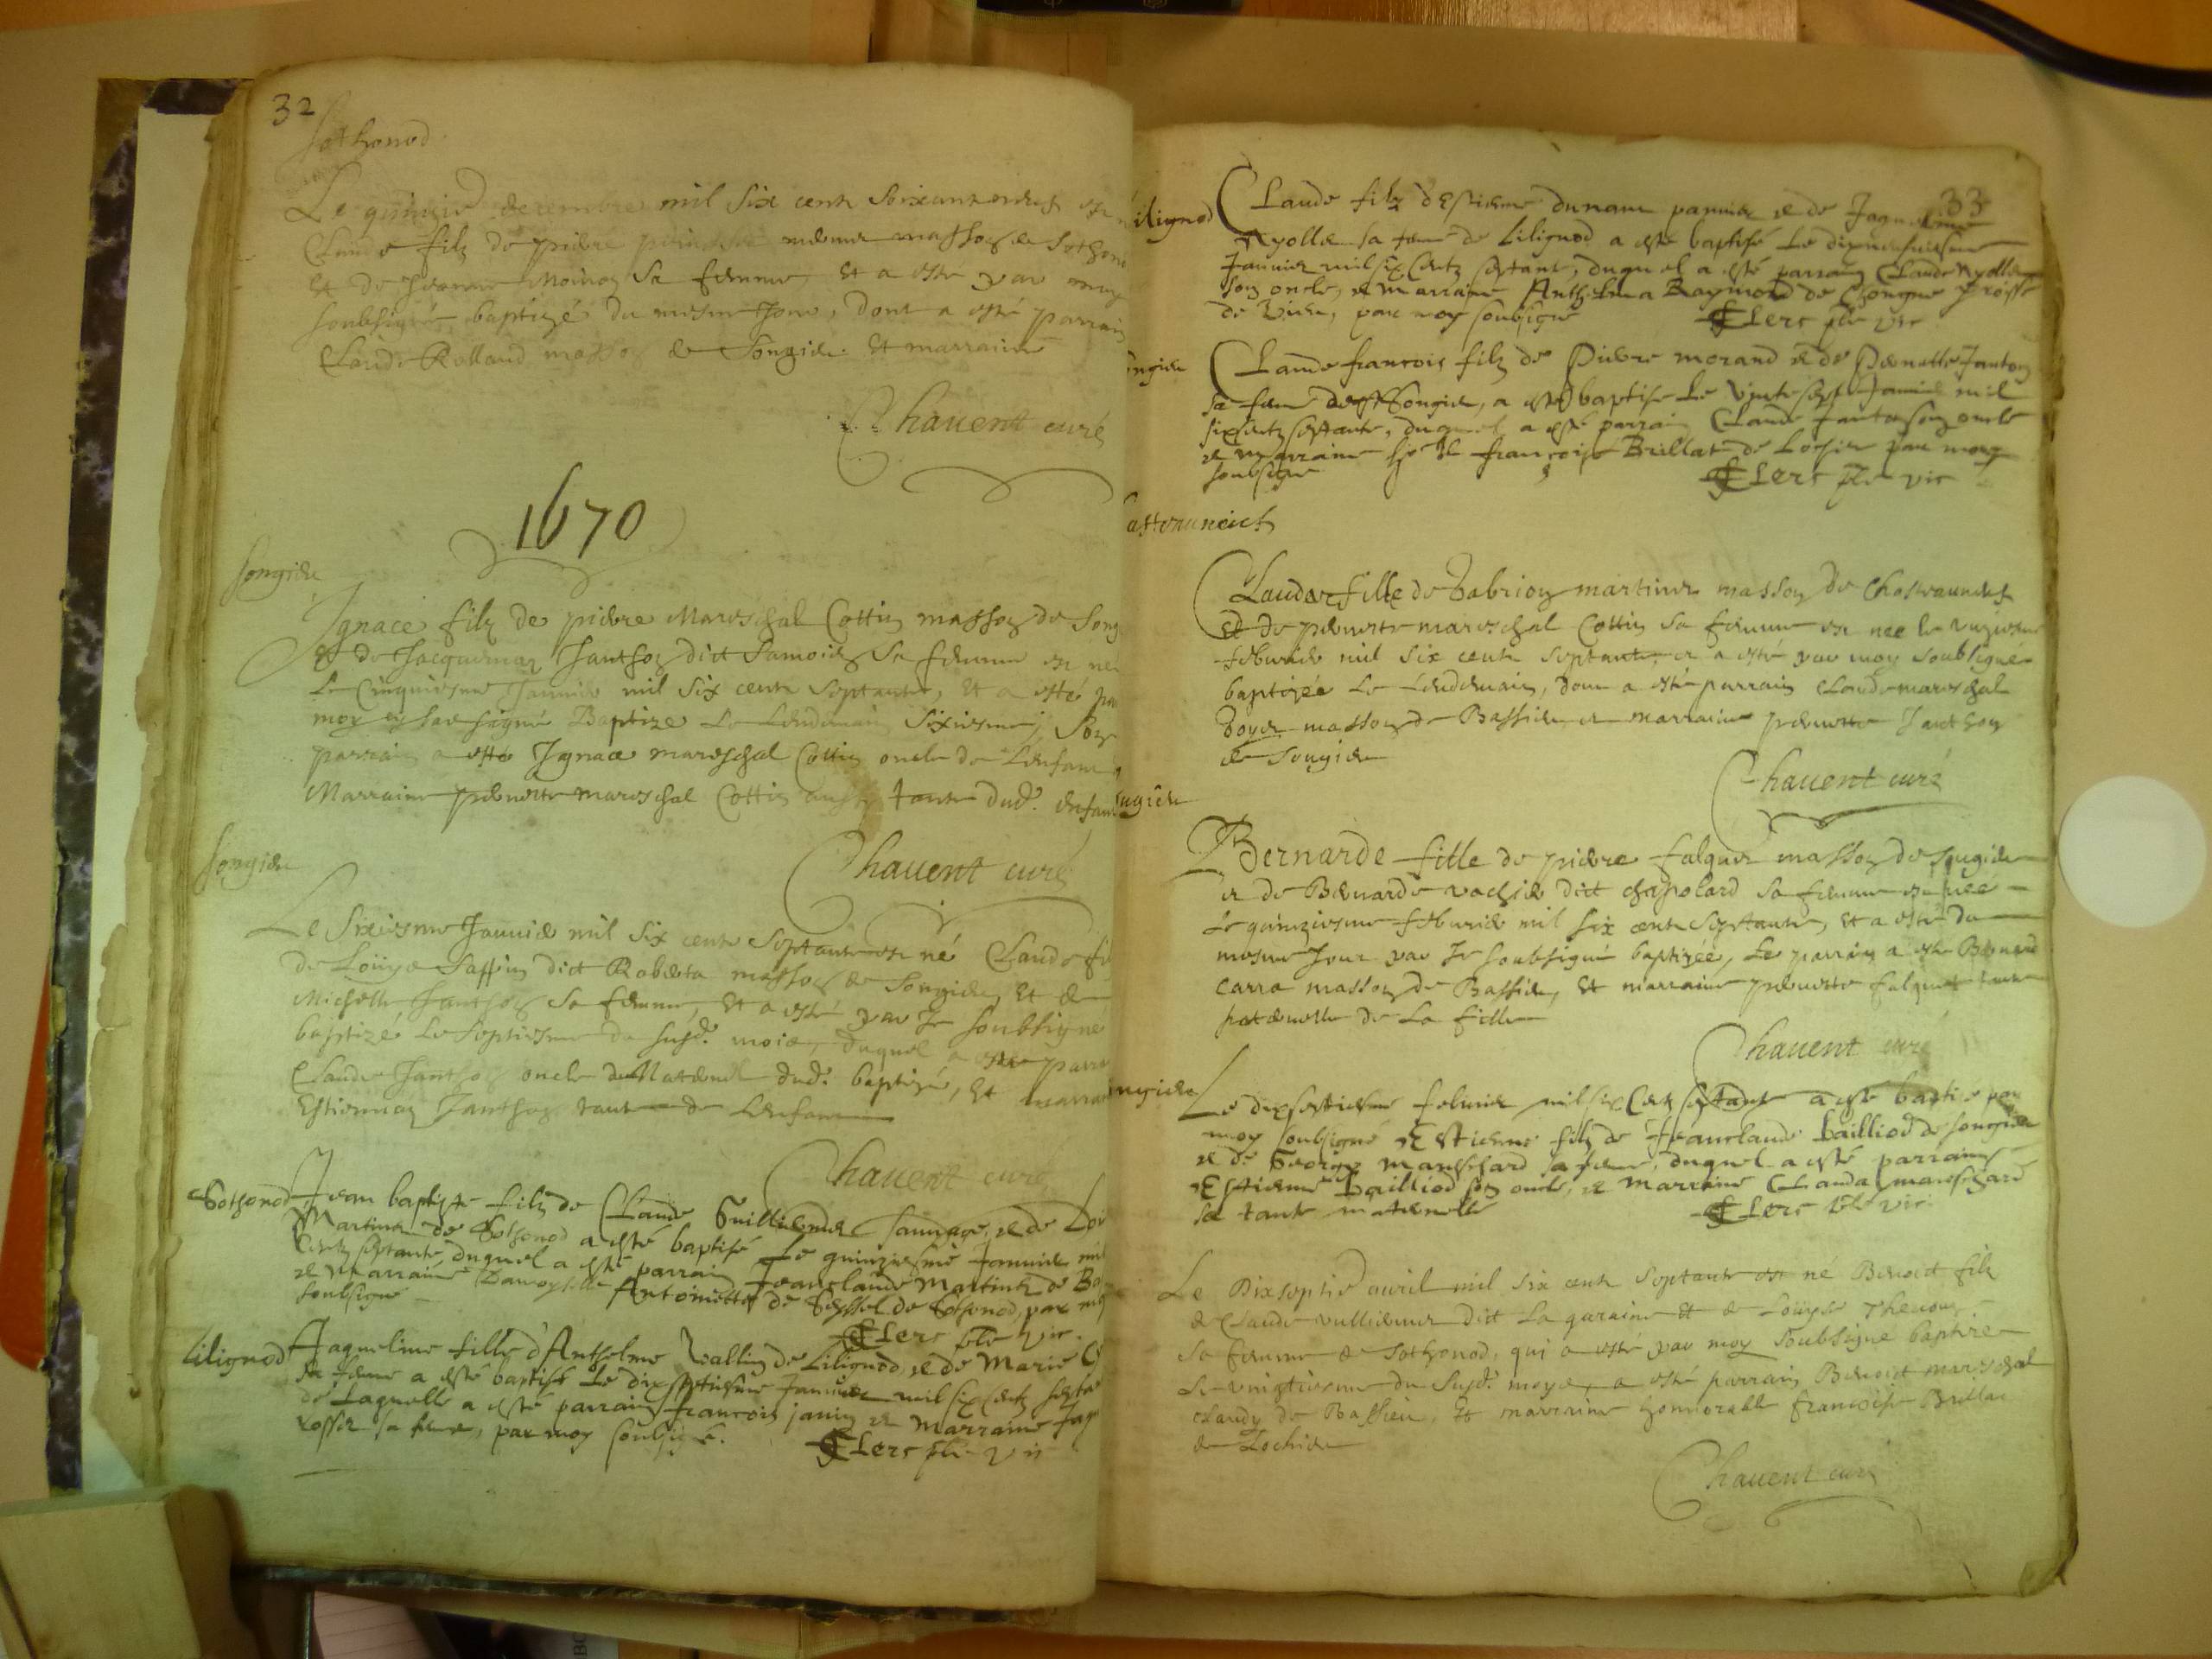 32
Sothonod
Le quinzie decembre mil six cent soixante et neuf est
Claude filz de pierre masson de Sothono
et de Jeanne Moinaz sa femme, et a esté par moy
soubsigné baptizé du mesme Jour, dont a esté parrain
Claude Rolland masson de Songieu et marraine
Chavent curé
1670
Songieu
Ignace filz de pierre Mareschal Cottin masson de Song
et de Jacquemaz Janthoz dict Samoids sa femme est né
Le Cinquiesme Janvié mil six cent septante, et a esté par
moy soubsigné Baptize Le Lendemain sixiesme, Son
parrain a esté Ignace mareschal Cottin oncle de L'enfant
Marraine pernette mareschal Cottin aussy tante dud. enfant
Chavent curé
Songieu
Le Sixiesme Janvié mil six cent septante est né Claude fi
de Loüys Saffin dict Roberta masson de Songieu, et de
Michelle Janthoz sa femme, et a esté par Je soubsigné
baptizé Le septiesme du susd. mois, duquel a esté parra
Claude Janthoz oncle Maternel dud. baptizé, et marrai
Estiennaz Janthoz tante de L'enfant
Chavent curé
Sothonod
Jean baptiste filz de Claude Guilliermer Sauvage, et de Loü
Martine de Sothonod a esté baptisé Le quinziesme Janvier mil
Centz septante, duquel a esté parrain Jeanclaude Martin de Ba
et Marraine Damoyselle Antoinette de Seyssel de Sothonod, par moy
soubsigné
Clerc ptre vic.
Lilignod
Jaqueline fille d'Anthelme Vallin de Lilignod, et de Marie
sa feme a esté baptisé Le dixseptiesme Janvier mil six centz septa
de Laquelle a esté parrain francois janin et Marraine Jaq
rosset sa feme, par moy soubsigné.
Clerc ptre vic
33
Lilignod
Claude filz d'Estienne dunant pannier et de Jaquemine
Nyollet sa feme de Lilignod a esté baptisé Le dixneufviesme
Janvier mil six Centz septante, duquel a esté parrain Claude Nyollet
son oncle, et Marraine Anthelma Raymond de Chongne
de Vieu, par moy soubsigné
Clerc ptre vic
ongieu
Claude francois filz de Pierre morand et de Pernette Janton
sa feme de Songieu, a esté baptisé Le vinteseptie Janvié mil
six centz septante, duquel a esté parrain Claude Janton son oncle
et Marraine françoise Brillat de Lochieu par moy
soubsigné
Clerc ptre vic
Claudaz fille de Gabriou martiner masson de Chasteauneuf
et de pernette mareschal Cottin sa femme est nee le unziesme
feburié mil six cent septante, et a esté par moy soubsigné
baptizée Le Lendemain, dont a esté parrain Claude mareschal
boyer masson de Bassieu et marraine pernette Janthoz
de Songieu
Chavent curé
ngieu
Bernarde fille de pierre falquet masson de Songieu
et de Bernarde vachié dict chapolard sa femme est née
Le quinziesme feburié mil six cent septante, et a esté du
mesme Jour par Je soubsigné baptizée, Le parrain a esté Bernard
Carra masson de Bassieu, et marraine pernette falquet tante
paternelle de La fille
Chavent curé
ngieu
Le dixseptiesme febvrier mil six Centz septante a esté baptisé par
moy soubsigné Estienne filz de Jeanclaude bailliod de songieu
et de George Mareschard sa feme, duquel a esté parrain
Estienne bailliod son oncle, et Marraine Clauda mareschard
sa tante maternelle
Clerc ptre vic.
Le Dixseptie avril mil six cent septante est né Benoict filz
de Claude vulliermer dict La garaine et de Loüyse Thevenon
sa femme de Sothonod, qui a esté par moy soubsigné baptize
Le vingtiesme du susd. moys, a esté parrain Benoict mareschal
claudy de Bassieu, et marraine honnorable françoise Brillat
de Lochieu
Chavent curé